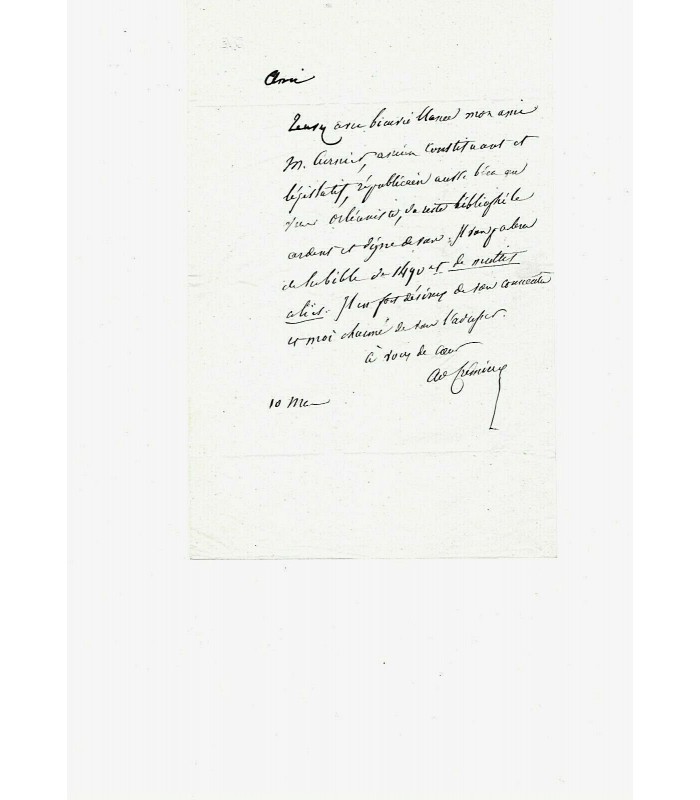 Ami
avec bienveillance mon ami
M. ancien constituant et
législatif, républicain aussi bien qu
orléaniste, du reste bibliophile
ardent et digne de vous. Il vous parlera
de la bible de 1490 et de multis
aliis. Il est fort désireux de vous connaitre
et moi charmé de vous l'adresser.
à vous de cœur
Ad Crémieux
10 Mai